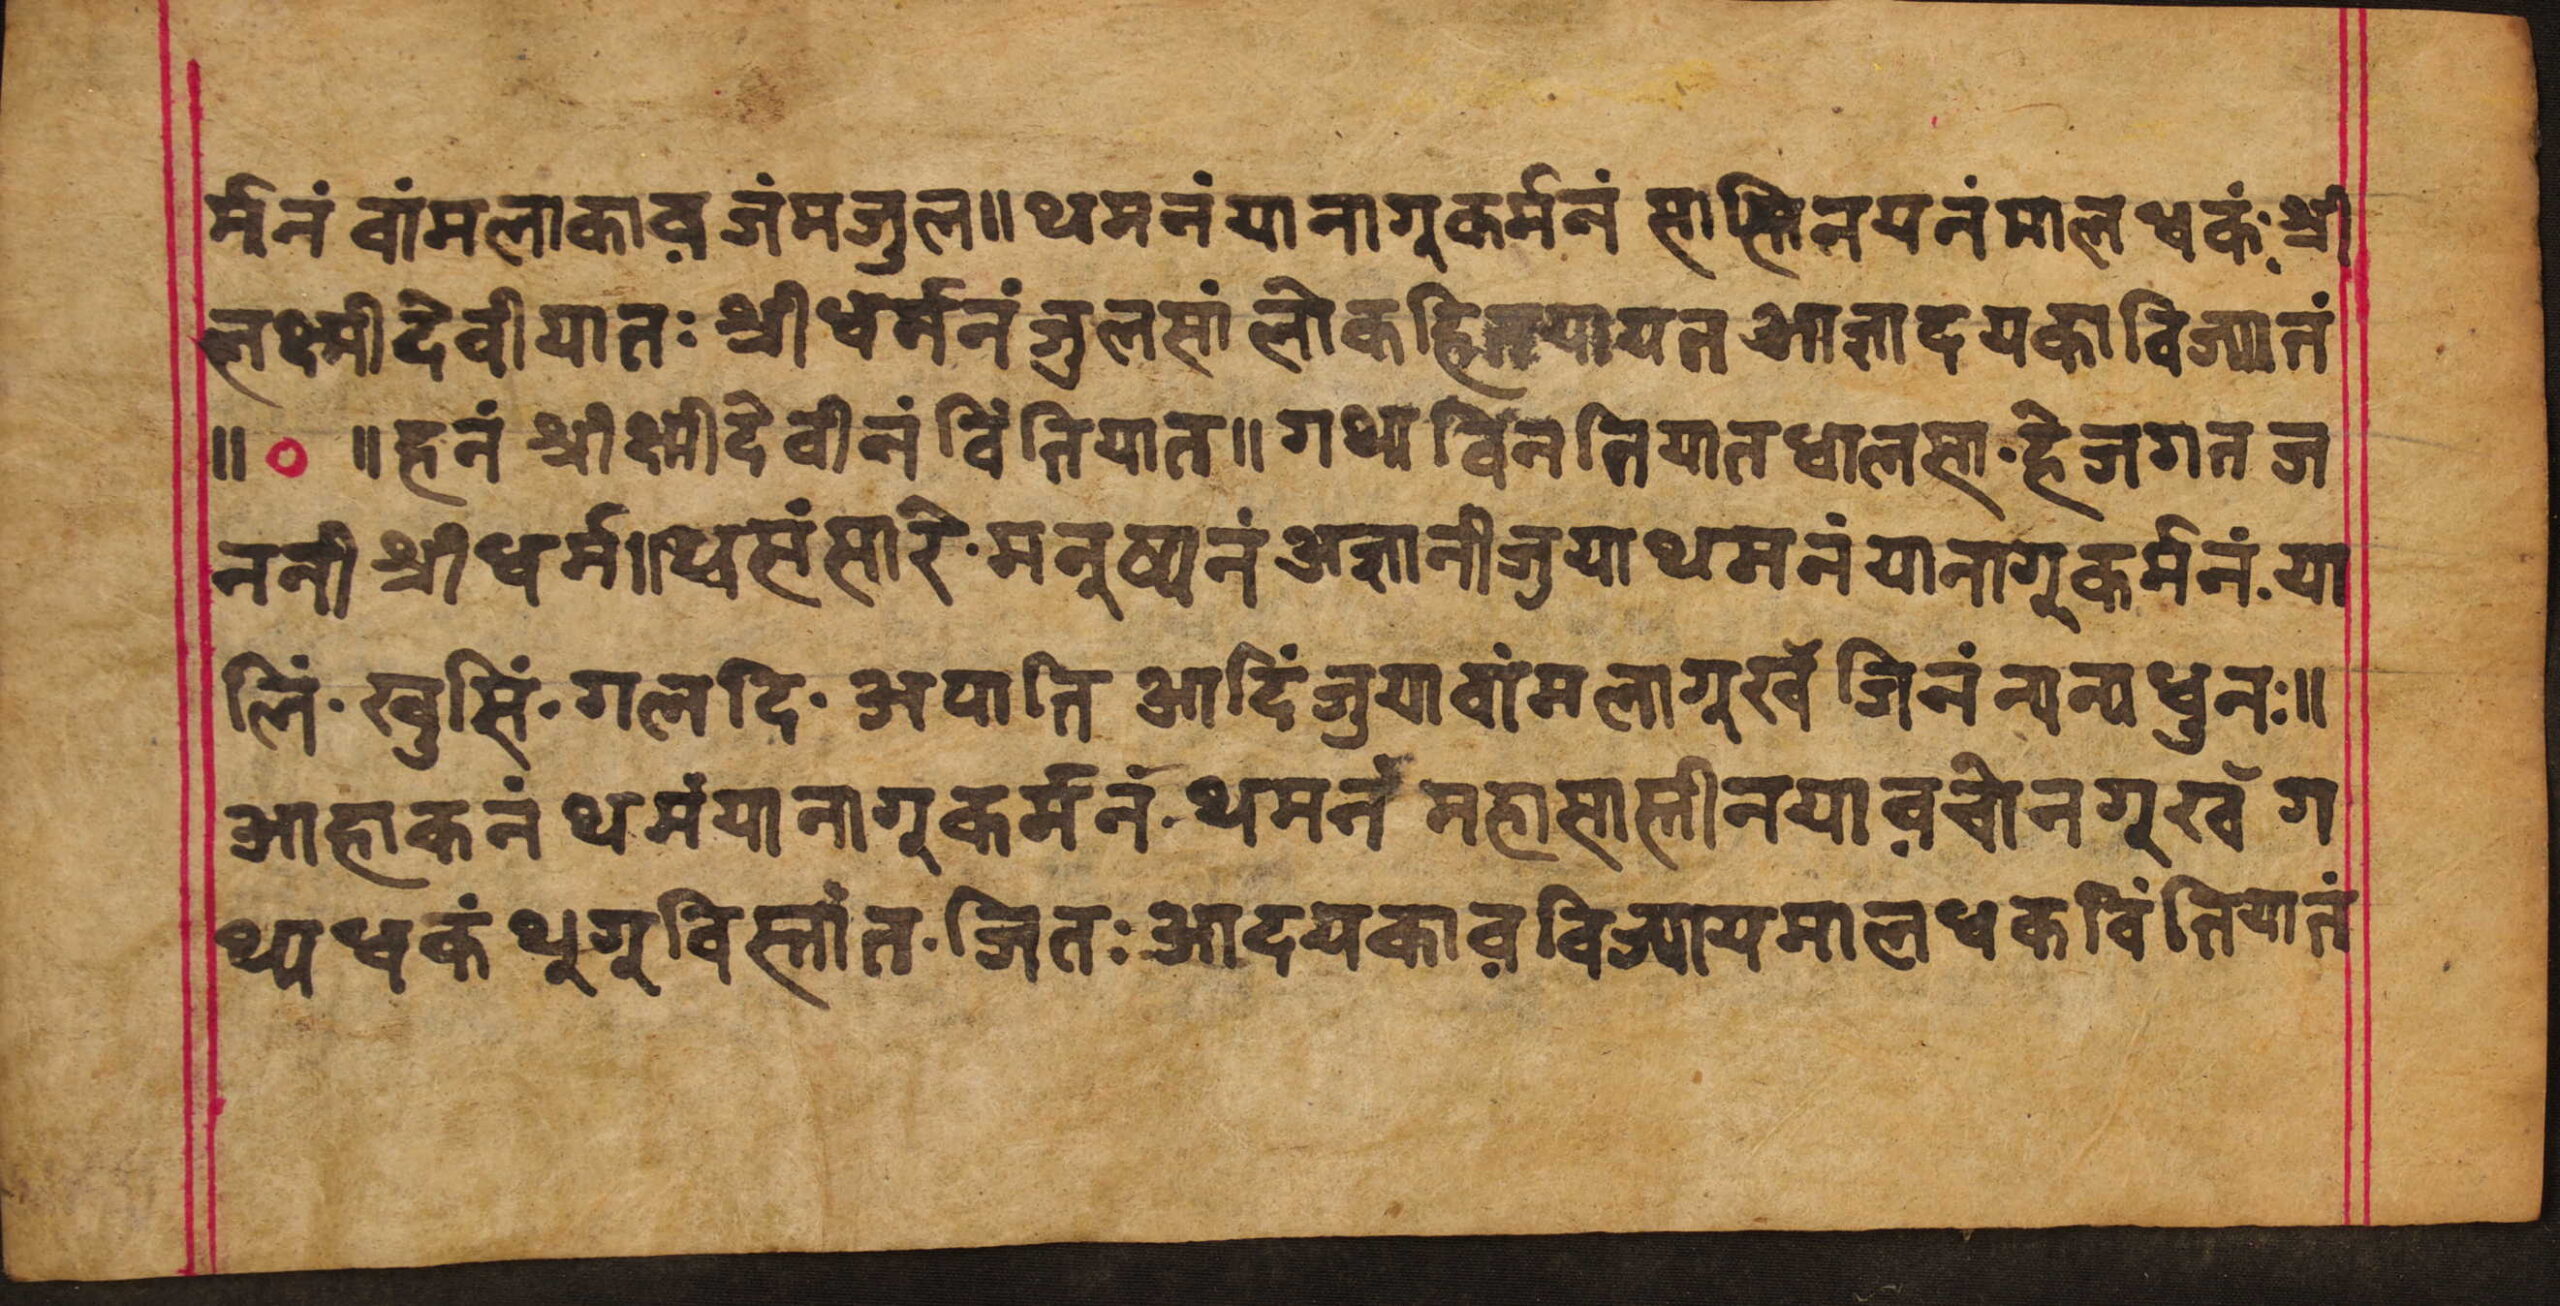 र्मनं वांमलाकाव़ जंमजुल॥थमनंयानागूकर्मनं सास्तिनयनंमालधकं॰श्री
लक्ष्मीदेवीयातः श्रीधर्मनं जुलसां लोकहितयायत आज्ञादयकाविज्यातं
॥ ० ॥ह्ननं श्रीक्ष्मीदेवीनं विंतियात॥गथ्य विनतियातधालसा॰हेजगतज
ननी श्रीधर्म॥थ्वसंसारे॰मनूष्यनं अज्ञानीजुयाथमनंयानागूकर्मनं॰या
लिं॰खुसिं॰गलदि॰अपाति आदिंजुयावांमलागूखँ जिनं न्यन्यधुनः॥
आह्राकनं थमंयानागूकर्मनं॰थमनं महासास्तीनयाव़चोनगूखँ ग
थ्यधकं थूगूविस्तांत॰जितः आदयकाव़विज्यायमालधकविंतियातं